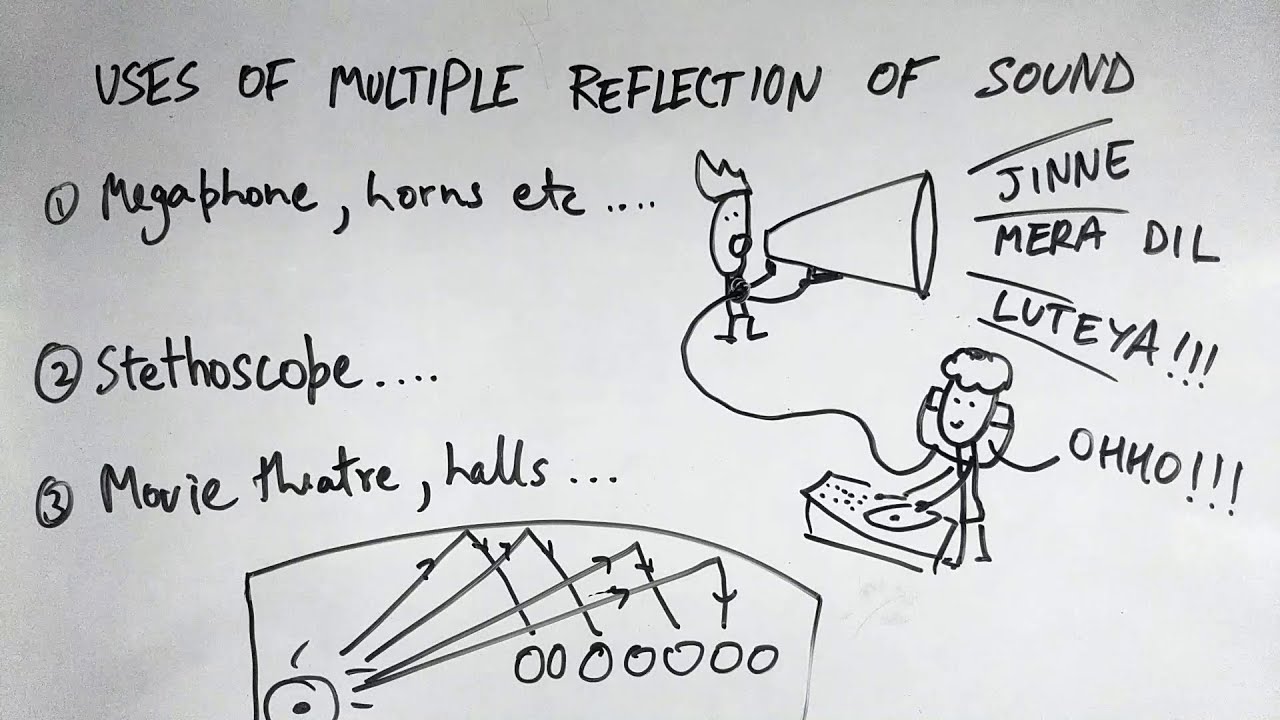 USES OF MULTIPLE REFLECTION OF SOUND
① Megaphone, horns etc....
JINNE
MERA DIL
LUTEYA!!!
② Stethoscope....
OHHO!!!
③ Movie theatre, halls...